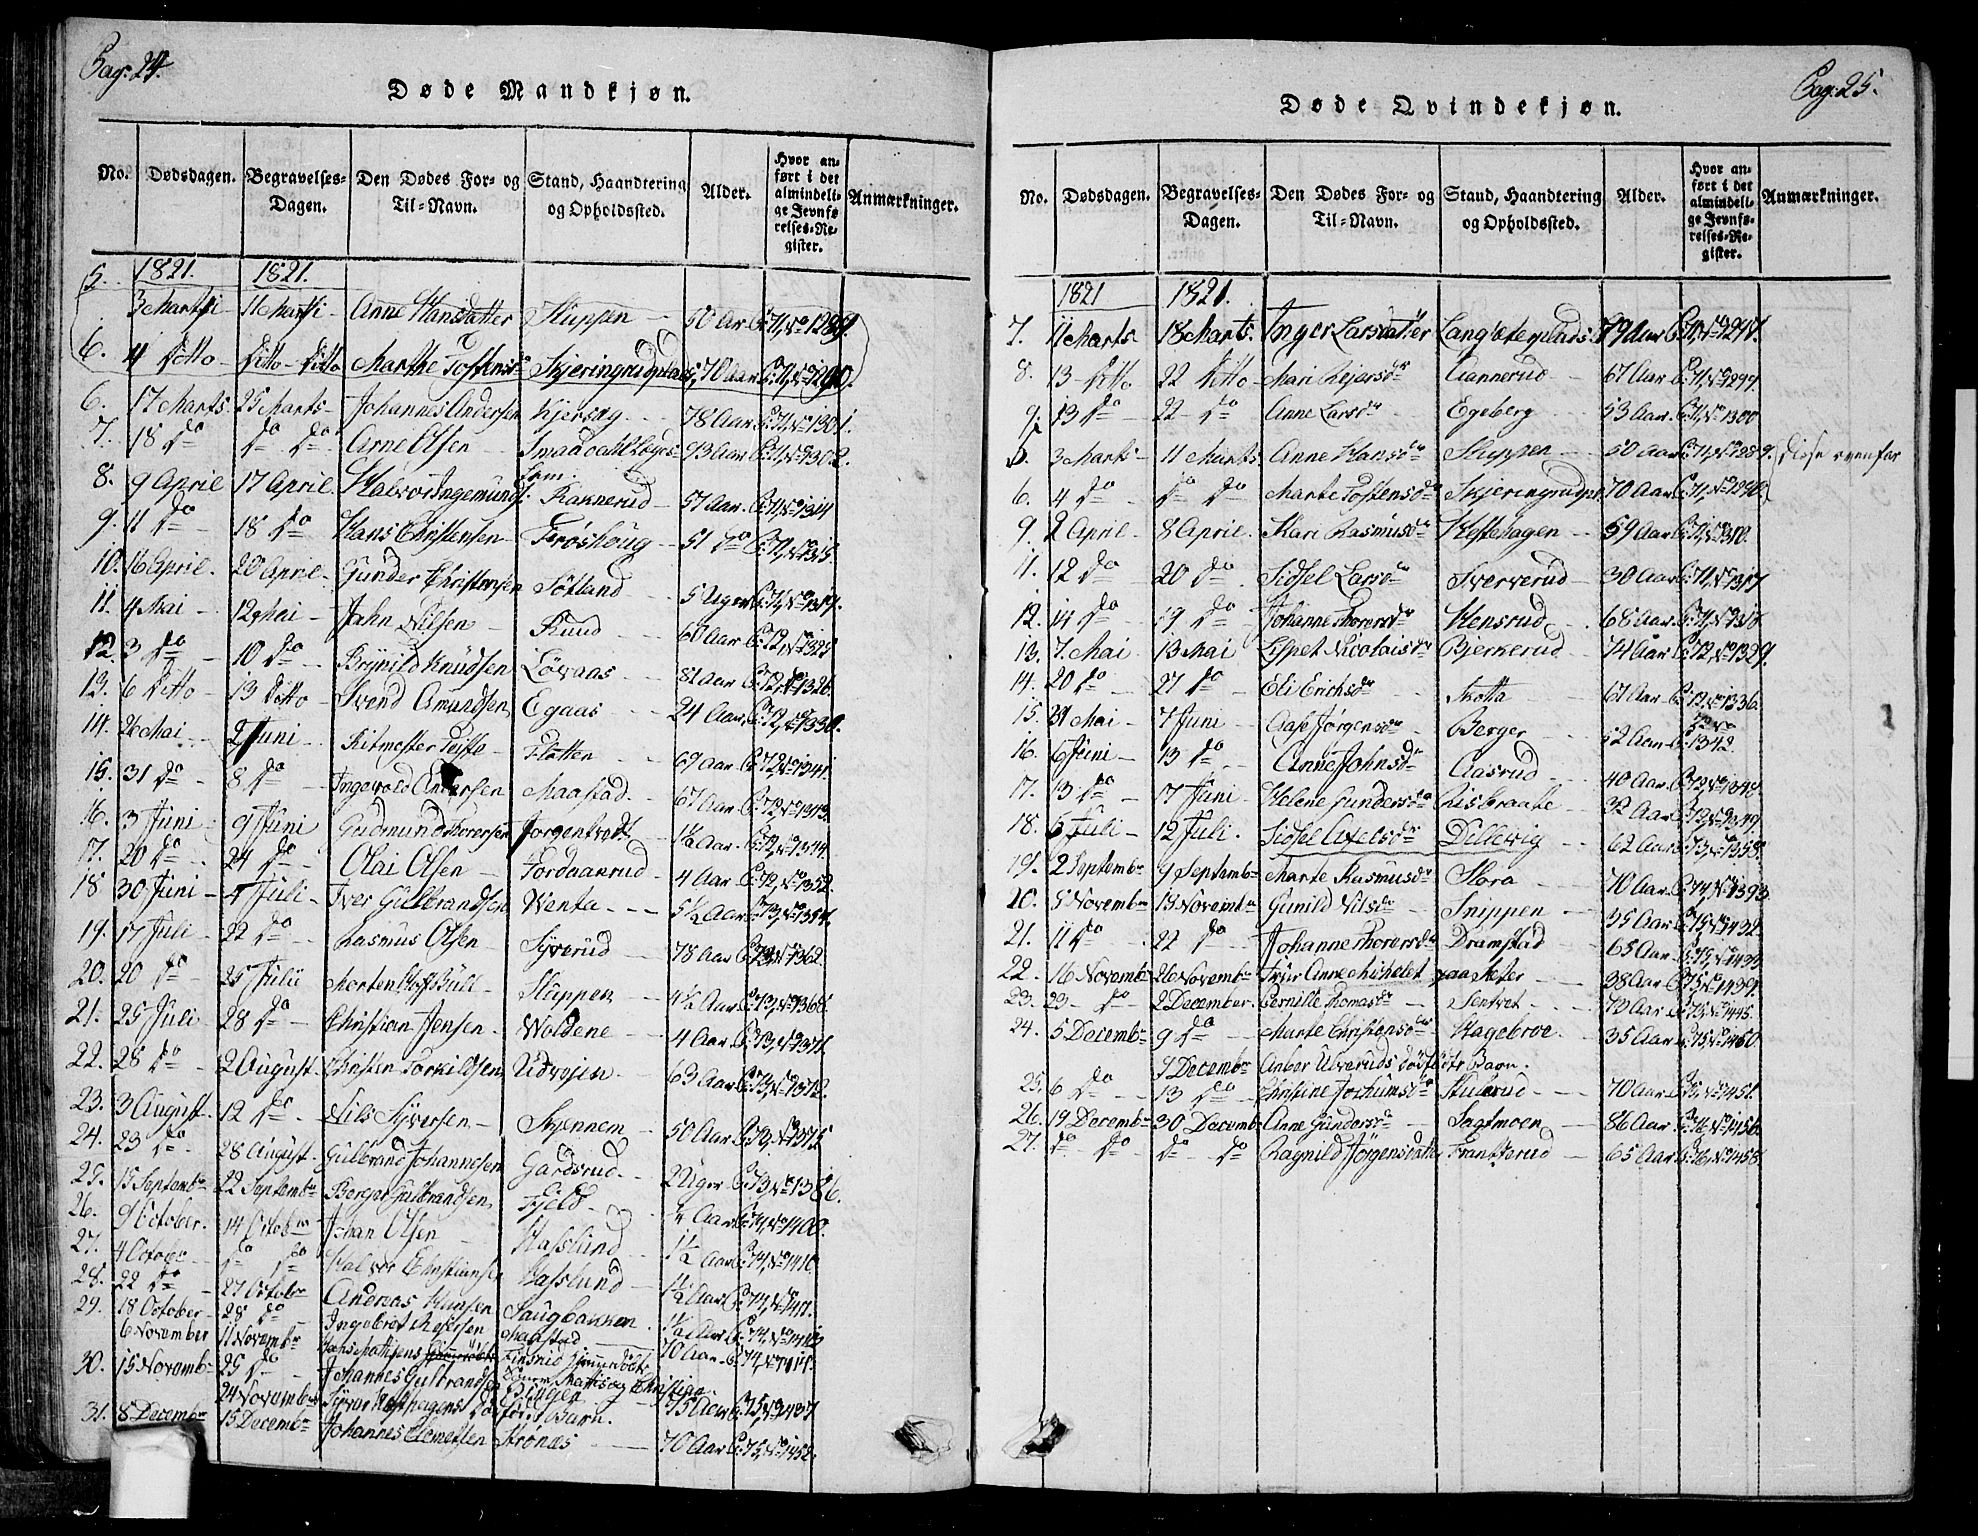 Pag: 24.
Døde Mandkjøn.
No. Dødsdagen. Begravelses-Dagen. Den Dødes For- og Til-Navn. Stand, Haandtering og Opholdssted. Alder. Hvor anført i det almindelige Jevnførelses-Register. Anmærkninger.
1821. 1821.
5. 3 Marti 11 Marti Anne Hansdatter Skippen 50 Aar P: 71, No 1289.
6. 4 Ditto Ditto Ditto Marthe Tostens Skjeringrudplads 70 Aar P: 71, No 1290.
6. 17 Marts 25 Marts Johannes Andersen Kjersøg 78 Aar P: 71, No 1301.
7. 18 do do do Arne Olsen 93 Aar P: 71, No 1302.
8. 9 April 17 April Halvor Ingemunds. Raknerud 57 Aar P: 71, No 1314
9. 11 do 18 do Hans Christensen Frøshoug 51 do P: 71, No 1315.
10. 16 April. 20 April Gunder Christensen Søtland 5 Uger P: 71, No 1319.
11. 4 Mai 12 Mai John Nilsen Ruud 60 Aar P: 72, No 1325
12. 3 do 10 do Brynild Knudsen Löväas 81 Aar P: 72, No 1326.
13. 6 Ditto 13 Ditto Svend Amundsen Egaas 24 Aar P: 72, No 1330.
14. 26 Mai 2 Juni Ritmester Teiste Flatten 69 Aar P: 72, No 1341.
15. 31 do 8 do Ingevald Andersen Maastad 67 Aar P: 72, No 1343.
16. 3 Juni 9 Juni Gudmund Thorersen Jorgentvedt 1½ Aar P: 72, No 1344.
17. 20 do 24 do Olai Olsen Fordaanrud 4 Aar P: 72, No 1352.
18 30 Juni 4 Juli Iver Gulbrandsen Wenta 5½ Aar P: 73, No 1357.
19. 17 Juli 22 do Rasmus Olsen Syverud 78 Aar P: 73, No 1362
20. 20 do 25 Julii Morten Bull Skippen 4½ Aar P: 73, No 1366.
21. 25 Juli 28 do Christian Jensen Woldene 4 Aar P: 73, No 1371.
22. 28 do 2 August. Christen Torkildsen Udvejen 63 Aar P: 73, No 1372.
23. 3 August. 12 do Nils Syversen Skjennem 50 Aar P: 73, No 1375
24. 23 do 28 August. Gulbrand Johannesen Gardsrud 2 Uger P: 73, No 1386.
25. 15 Septembr 22 Septembr Borger Gulbrandsen Fjeld Aar P: 74, No 1400.
26. 9 October. 14 Octobr Johan Olsen Hasslund 1½ Aar P: 74, No 1410
27. 4 Octobr do do Halvor Christiansen Hasslund 1½ Aar P: 74, No 1411.
28. 22 do 27 Octobr Andreas Hansen Haugbakken 1½ Aar P: 74, No
29. 18 October 28 do Ingebret Rejersen Maastad 70 Aar P: 74, No
6 November 11 Novembr Hans Mathisens
30. 15 Novembr 25 do Johannes Gulbrandsen Billgen 75 Aar P: 75, No 1437
24 Novembr Syver Hesthagens dødfødt Barn.
31. 8 Decembr 15 Decembr Johannes Clemetsen Strönes 70 Aar P: 75, No 1452.
Pag: 25.
Døde Qvindekjøn.
No. Dødsdagen. Begravelses-Dagen. Den Dødes For- og Til-Navn. Stand, Haandtering og Opholdssted. Alder. Hvor anført i det almindelige Jevnførelses-Register. Anmærkninger.
1821 1821.
7. 11 Marts 18 Marts. Inger Larsdatter Langsæterplads 79 Aar P: 71, No 1297.
8. 13 Ditto 22 Ditto Mari Rejersdr Aannerud 67 Aar P: 71, No 1299.
9. 13 do 22 do Anne Larsdr Egeberg 53 Aar P: 71, No 1300
5. 3 Marts 11 Marts Anne Hansdr Skippen 50 Aar P: 71, No 1289. disse ovenfor
6. 4 do do do Marte Tostensdr Skjeringrudpl. 70 Aar P: 71, No 1290.
9. 2 April. 8 April. Kari Rasmusdr Hestehagen 59 Aar P: 71, No 1310.
11. 12 do 20 do Sidsel Larsdr Sververud 30 Aar P: 71, No 1317
12. 11 do 19 do Johanne Thorersdr Hensrud 68 Aar P: 71, No 1318
13. 7. Mai 13 Mai Lispet Nicolaisdr Bjerkerud 74 Aar P: 72, No 1329.
14. 20 do 27 do Eli Erichsdr Skotta 67 Aar P: 72, No 1336.
15. 21 Mai 7 Juni Aase Jörgensdr Berger 52 Aar P: 72 No 1342.
16. 6 Juni 13 do Anne Johnsdr Aasrud 40 Aar P: 72, No 1348.
17. 13 do 17 Juni Helene Gundersdr Risbraate 32 Aar P: 72, No 1349.
18. 5 Juli 12 Juli. Sidsel Axelsdr Dillevig 62 Aar P: 73, No 1358.
19. 2 Septembr 9 Septembr Marte Rasmusdr Flora 70 Aar P: 74, No 1393.
20. 5 Novembr 13 Novembr Gunild Nilsdr Snippen 35 Aar P: 75, No 1432.
21. 11 do 22 do Johanne Thorersdr Dramstad 65 Aar P: 75, No 1433
22. 16 Novembr 26 Novembr Frue Anne Michelet paa Moter 38 Aar P: 75, No 1439.
23. 23 do 2 December. Pernille Thomasdr Sentvet 72 Aar P: 75, No 1445.
24. 5 Decembr 9 do Marte Christensdr Hagebroe 35 Aar P: 75, No 1450.
9 Decembr Anbor Ulveruds dødfødte Barn.
25. 6 do 13 do Christine Jochumsdr Stuterud 70 Aar P: 75, No 1451.
26. 19 Decembr 30 Decembr Anne Gundersdr Sagtmoen 86 Aar P: 76, No 1456
27. do do do do Ragnild Jörgensdatter Frantserud 65 Aar P: 76, No 1458.